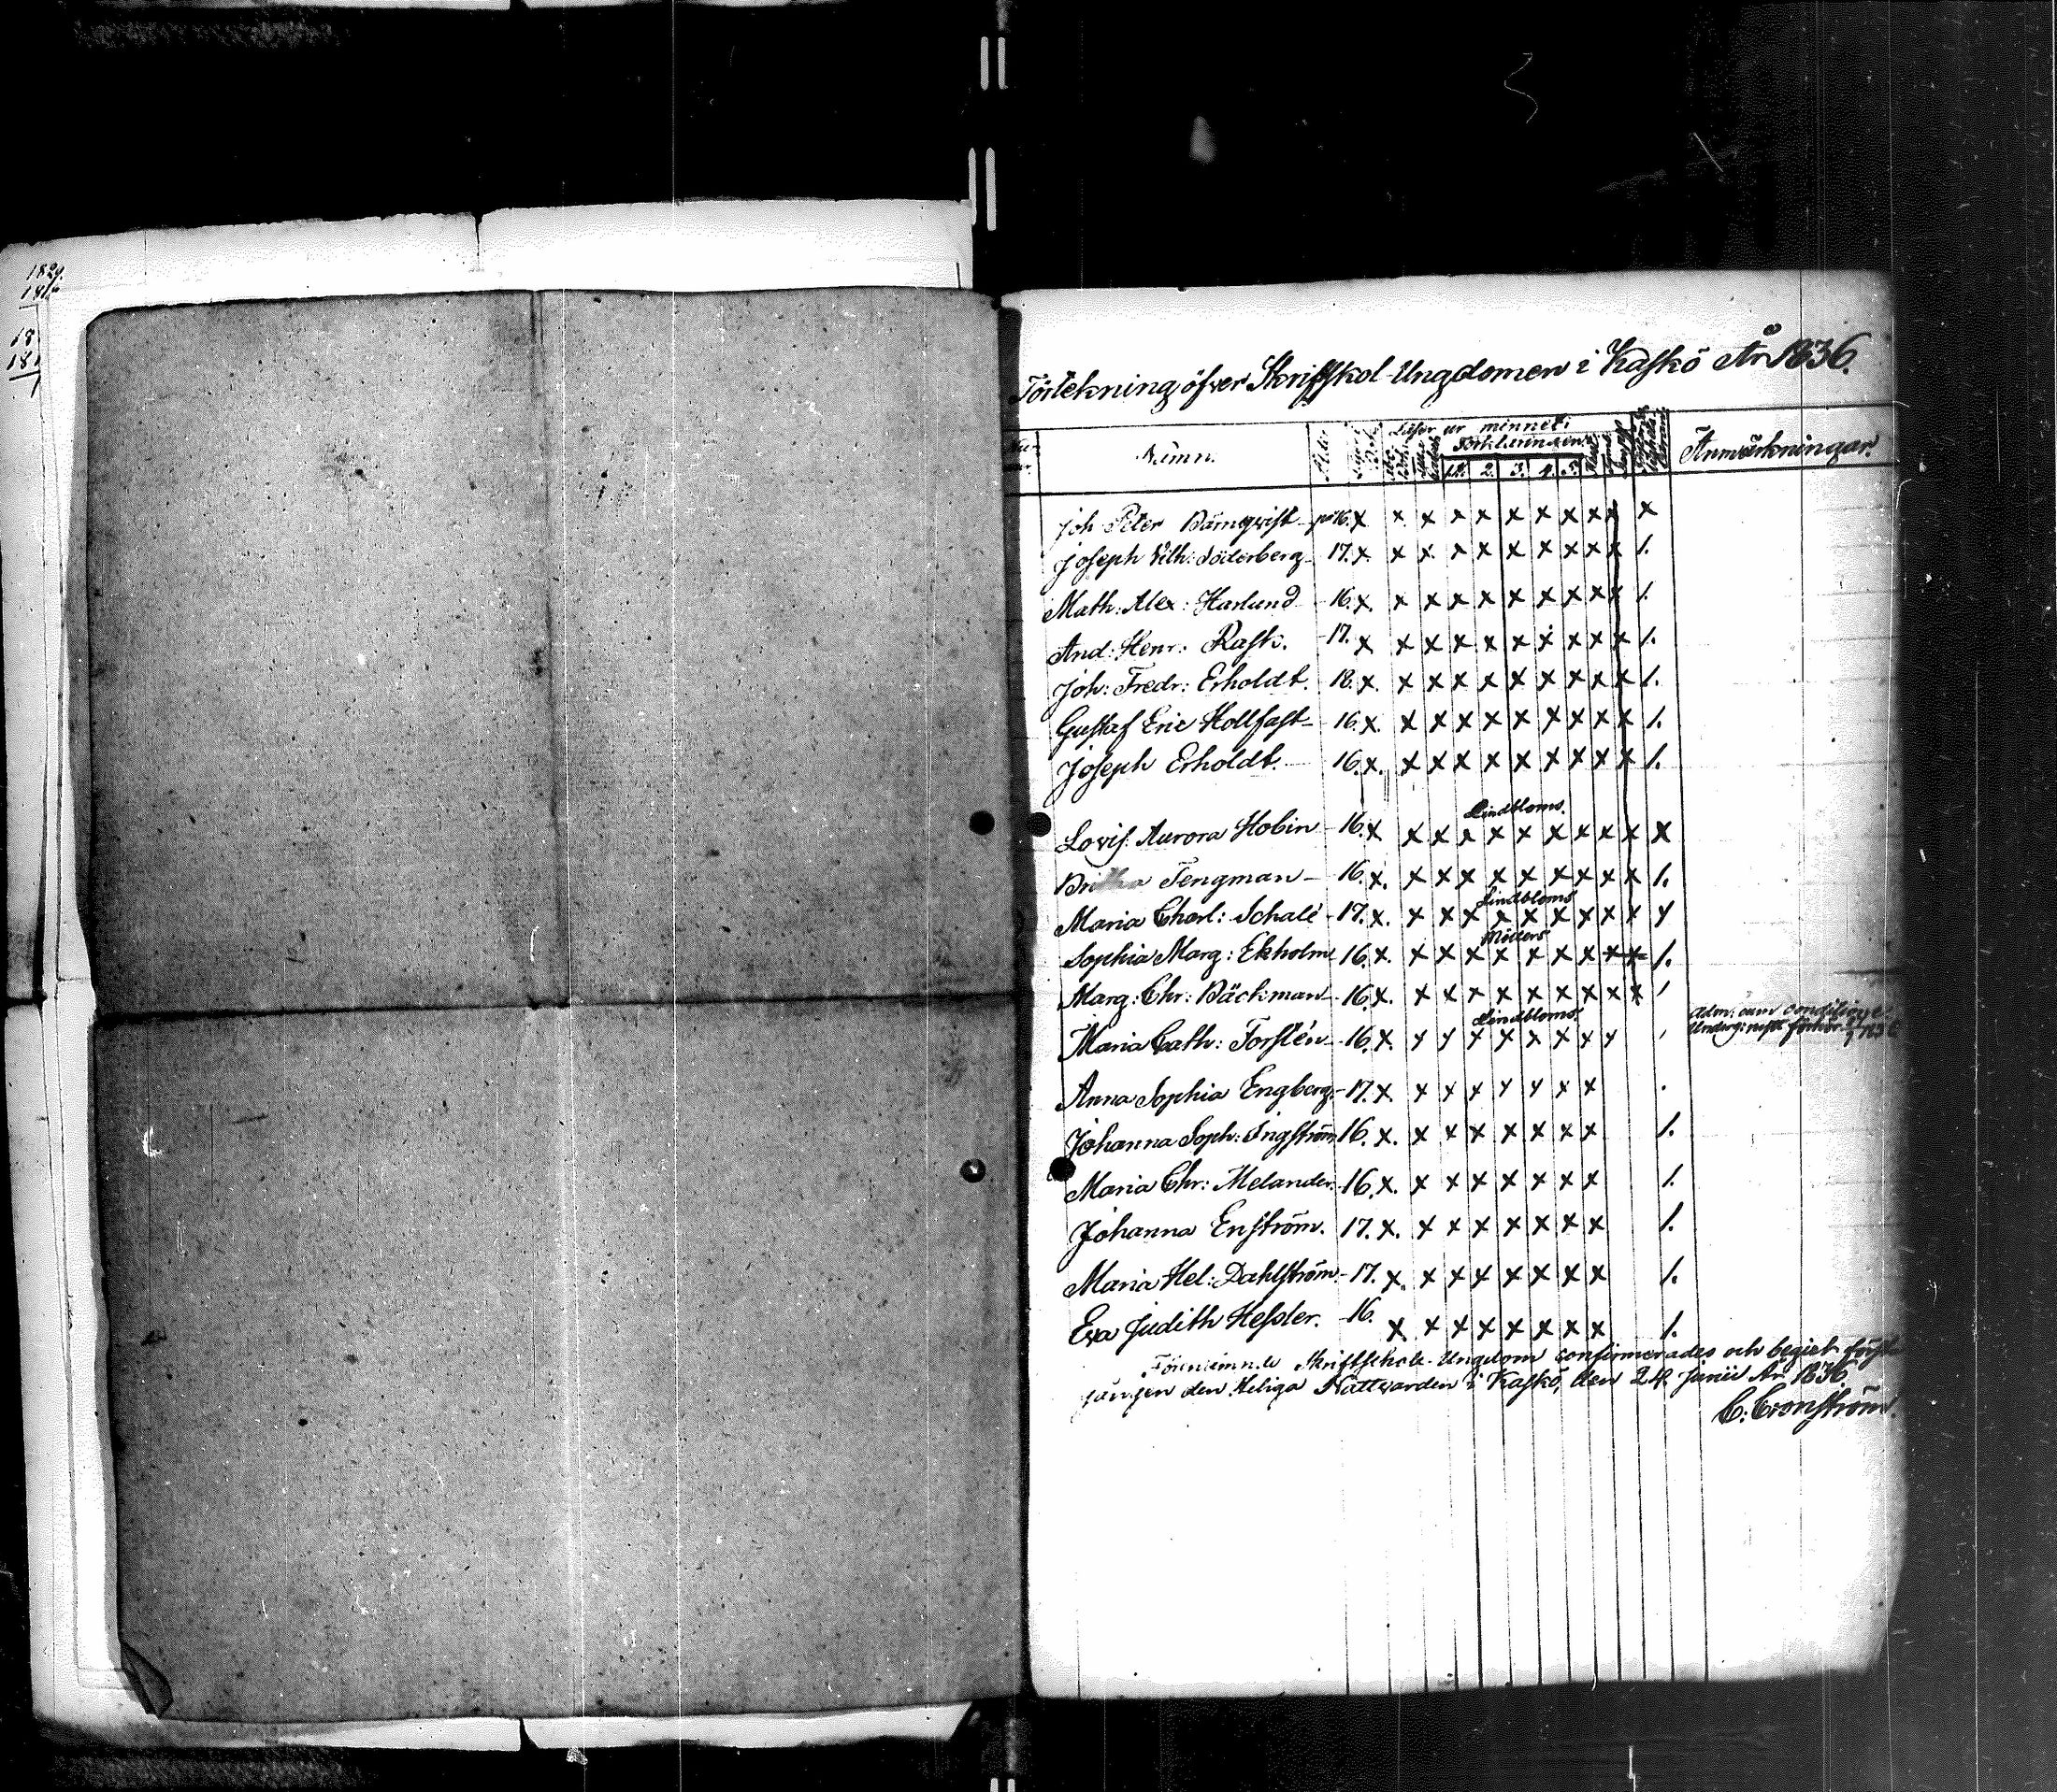 1829.
18
18
181
Förtekning öfver Skriftskol Ungdomen i Kaskö År 1836.
Namn. Läser ur minnet: Anmärkningar.
Förklaringen
1. 2. 3. 4. 5.
Joh Peter 16. x x x x x x x x x x x
Joseph Vilh: Söderberg 17. x. x x. x x x x x x x 1.
Math: Alex: Harlund 16. x. x x x x x x x x x 1.
And: Henr: Rask. 17. x x x x x x x x x x 1.
Joh: Fredr: Erholdt. 18. x. x x x x x x x x x 1.
Gustaf Eric Hollfast 16. x. x x x x x x x x x 1.
Joseph Erholdt. 16. x. x x x x x x x x x 1.
Lindbloms.
Lovis. Aurora Hobin 16. x x x x x x x x x x x
Tengman 16. x. x x x x x x x x x 1.
Lindbloms
Maria Charl: Schalé 17. x. x x x x x x x x x x
Möllers
Sophia Marg: Ekholm 16. x. x x x x x x x x x 1.
Marg: Chr: Bäckman 16. x. x x x x x x x x x 1
Lindbloms. Adm: cum conditione.
Maria Cath: Forstén 16. x. x x x x x x x x
Anna Sophia Engberg 17. x. x x x x x x x
Johanna Soph: Ingström 16. x. x x x x x x x 1.
Maria Chr: Melander. 16. x. x x x x x x x 1.
Johanna Enström. 17. x. x x x x x x x 1.
Maria Hel: Dahlström 17. x. x x x x x x x 1.
Eva Judith Hessler. 16. x. x x x x x x x 1.
Förenämnde Skriftschole-Ungdom confirmerades och begick först
gången den Heliga Nattvarden i Kaskö, den 24 Junii År 1836.
C: Cronström.